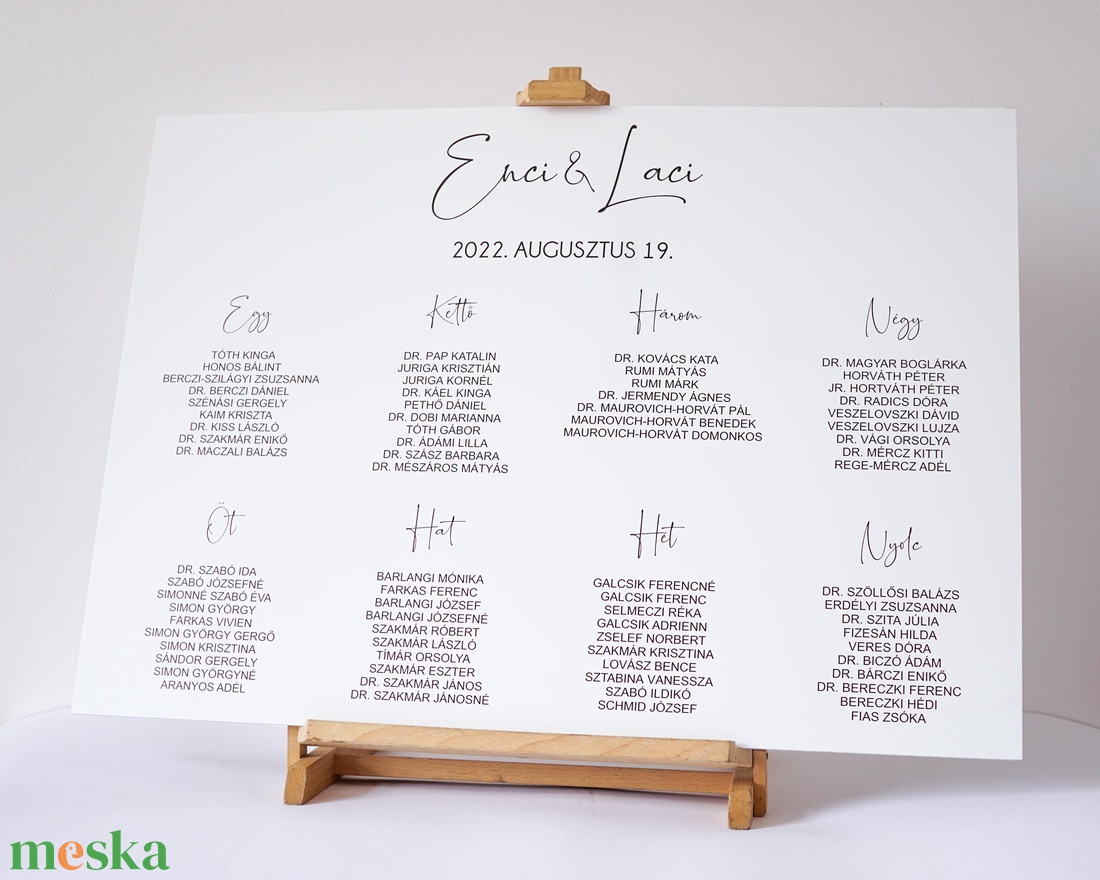 Enci & Laci
2022. AUGUSZTUS 19.
Egy
TÓTH KINGA
HONOS BÁLINT
BERCZI-SZILÁGYI ZSUZSANNA
DR. BERCZI DÁNIEL
SZÉNÁSI GERGELY
KAIM KRISZTA
DR. KISS LÁSZLÓ
DR. SZAKMÁR ENIKŐ
DR. MACZALI BALÁZS
Kettő
DR. PAP KATALIN
JURIGA KRISZTIÁN
JURIGA KORNÉL
DR. KÁEL KINGA
PETHŐ DÁNIEL
DR. DOBI MARIANNA
TÓTH GÁBOR
DR. ÁDÁMI LILLA
DR. SZÁSZ BARBARA
DR. MÉSZÁROS MÁTYÁS
Három
DR. KOVÁCS KATA
RUMI MÁTYÁS
RUMI MÁRK
DR. JERMENDY ÁGNES
DR. MAUROVICH-HORVÁT PÁL
MAUROVICH-HORVÁT BENEDEK
MAUROVICH-HORVÁT DOMONKOS
Négy
DR. MAGYAR BOGLÁRKA
HORVÁTH PÉTER
JR. HORTVÁTH PÉTER
DR. RADICS DÓRA
VESZELOVSZKI DÁVID
VESZELOVSZKI LUJZA
DR. VÁGI ORSOLYA
DR. MÉRCZ KITTI
REGE-MÉRCZ ADÉL
Öt
DR. SZABÓ IDA
SZABÓ JÓZSEFNÉ
SIMONNÉ SZABÓ ÉVA
SIMON GYÖRGY
FARKAS VIVIEN
SIMON GYÖRGY GERGŐ
SIMON KRISZTINA
SÁNDOR GERGELY
SIMON GYÖRGYNÉ
ARANYOS ADÉL
Hat
BARLANGI MÓNIKA
FARKAS FERENC
BARLANGI JÓZSEF
BARLANGI JÓZSEFNÉ
SZAKMÁR RÓBERT
SZAKMÁR LÁSZLÓ
TÍMÁR ORSOLYA
SZAKMÁR ESZTER
DR. SZAKMÁR JÁNOS
DR. SZAKMÁR JÁNOSNÉ
Hét
GALCSIK FERENCNÉ
GALCSIK FERENC
SELMECZI RÉKA
GALCSIK ADRIENN
ZSELEF NORBERT
SZAKMÁR KRISZTINA
LOVÁSZ BENCE
SZTABINA VANESSZA
SZABÓ ILDIKÓ
SCHMID JÓZSEF
Nyolc
DR. SZÖLLŐSI BALÁZS
ERDÉLYI ZSUZSANNA
DR. SZITA JÚLIA
FIZESÁN HILDA
VERES DÓRA
DR. BICZÓ ÁDÁM
DR. BÁRCZI ENIKŐ
DR. BERECZKI FERENC
BERECZKI HÉDI
FIAS ZSÓKA
meska